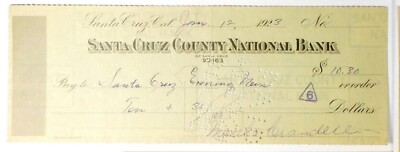 Santa Cruz, Cal. Jan 12, 1923 No.
SANTA CRUZ COUNTY NATIONAL BANK
OF SANTA CRUZ
90-163
$ 10.30
Pay to Santa Cruz Evening News or order
Ten &
Dollars
6
Crandell